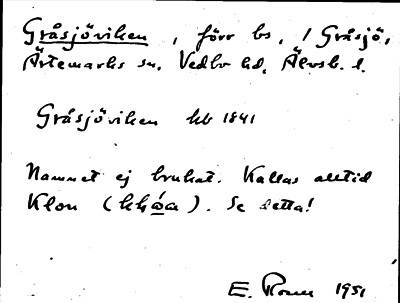 Gråsjöviken, förr bs. i Gråsjö,
Ärtemarks sn. Vedbo hd, Älvsb. l.
Gråsjöviken hb 1841
Namnet ej brukat. Kallas alltid
Klon ( ). Se detta!
E. 1951